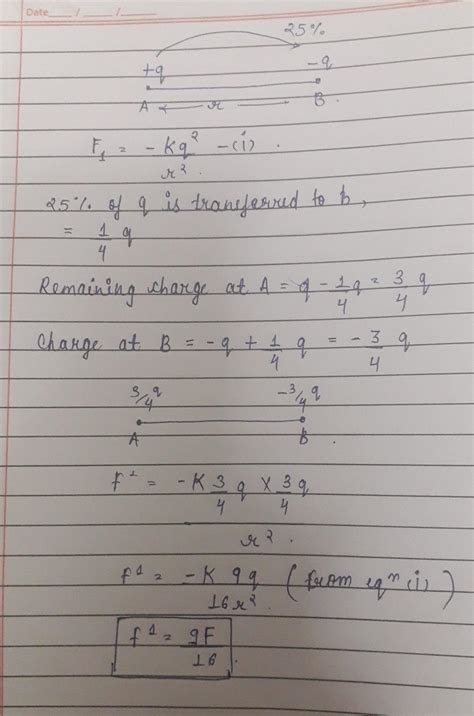 Date ___/___/___
25%
+q -q
A ← r → B.
F₁ = -Kq² -(i)
r².
25% of q is transferred to b,
= 1/4 q
Remaining charge at A = q - 1/4 q = 3/4 q
Charge at B = -q + 1/4 q = -3/4 q
3/4 q -3/4 q
A B.
f¹ = -K 3/4 q × 3/4 q
r².
f¹ = -K 9q (from eqⁿ (i))
16r².
f¹ = 9F/16.